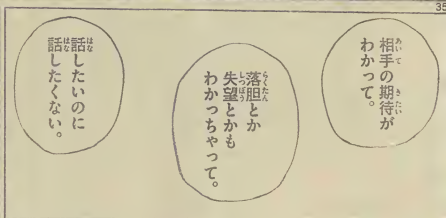 35
相手の期待が
わかって。
落胆とか
失望とかも
わかっちゃって。
話したいのに
話したくない。